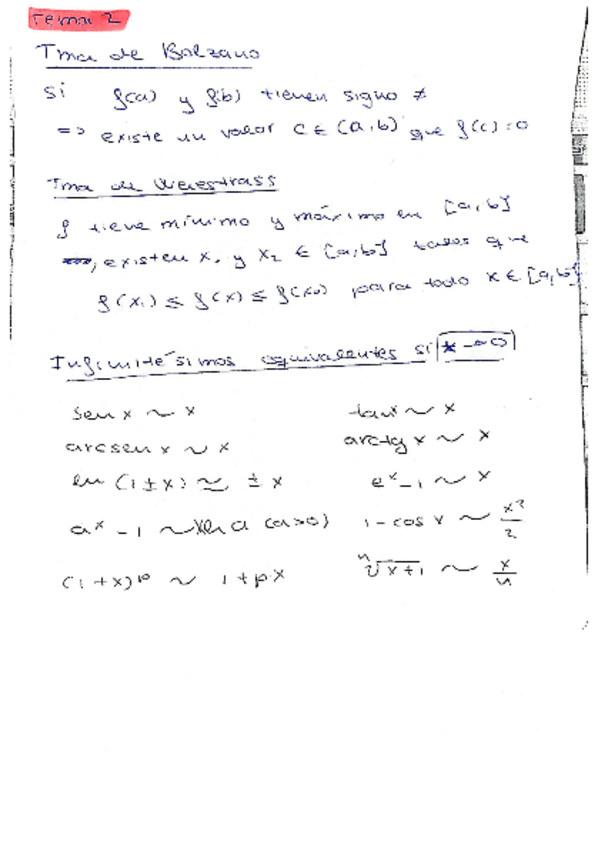 Tema 2
Tma de Bolzano
Si f(a) y f(b) tienen signo ≠
=> existe un valor c ∈ (a,b) que f(c)=0
Tma de Weiestrass
f tiene mínimo y máximo en [a,b]
, existen x₁ y x₂ ∈ [a,b] tales que
f(x₁) ≤ f(x) ≤ f(x₂) para todo x ∈ [a,b]
Infinitésimos equivalentes si x→0
sen x ~ x tan x ~ x
arcsen x ~ x arctg x ~ x
ln (1±x) ≃ ±x eˣ-1 ~ x
aˣ -1 ~ x ln a (a>0) 1-cos x ~ x²/2
(1+x)ᵖ ~ 1+px ⁿ√x+1 ~ x/n